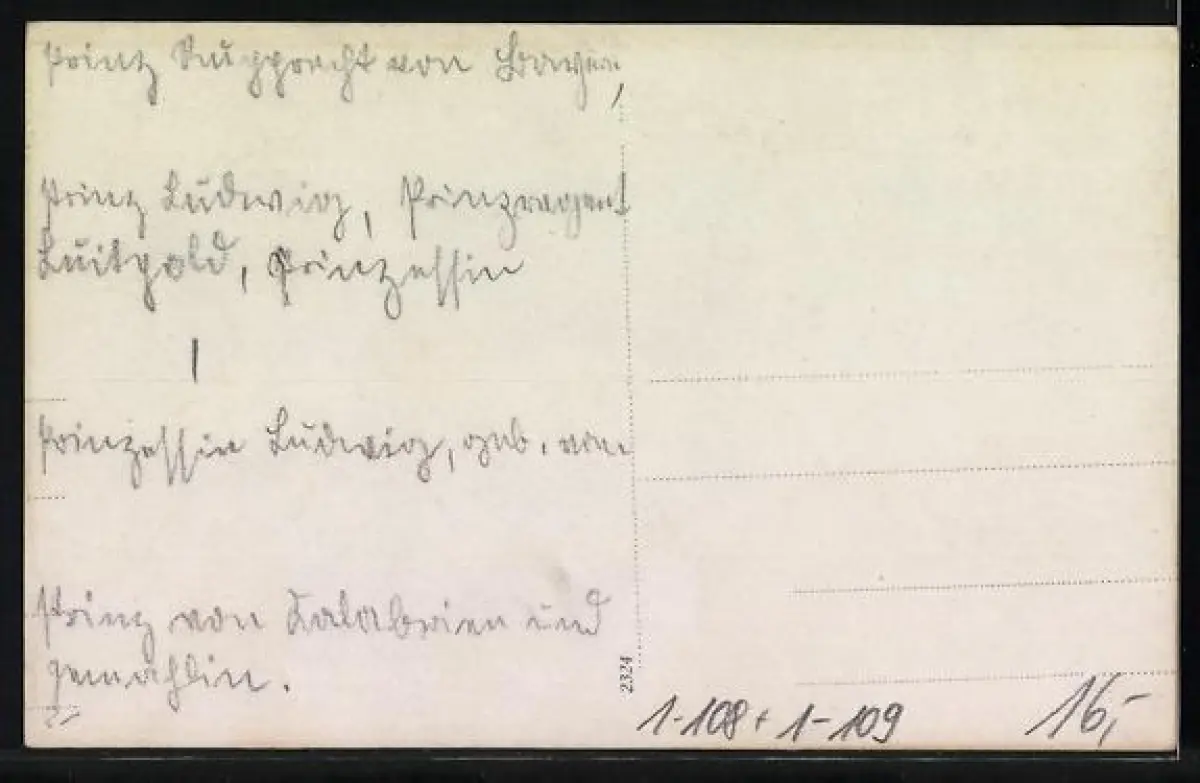 Prinz Rupprecht von Bayern,
Prinz Ludwig, Prinzregent
Luitpold, Prinzessin
Prinzessin Ludwig, geb. von
Prinz von Kalabrien und
gemahlin.
2324
1-108 + 1-109
16,-